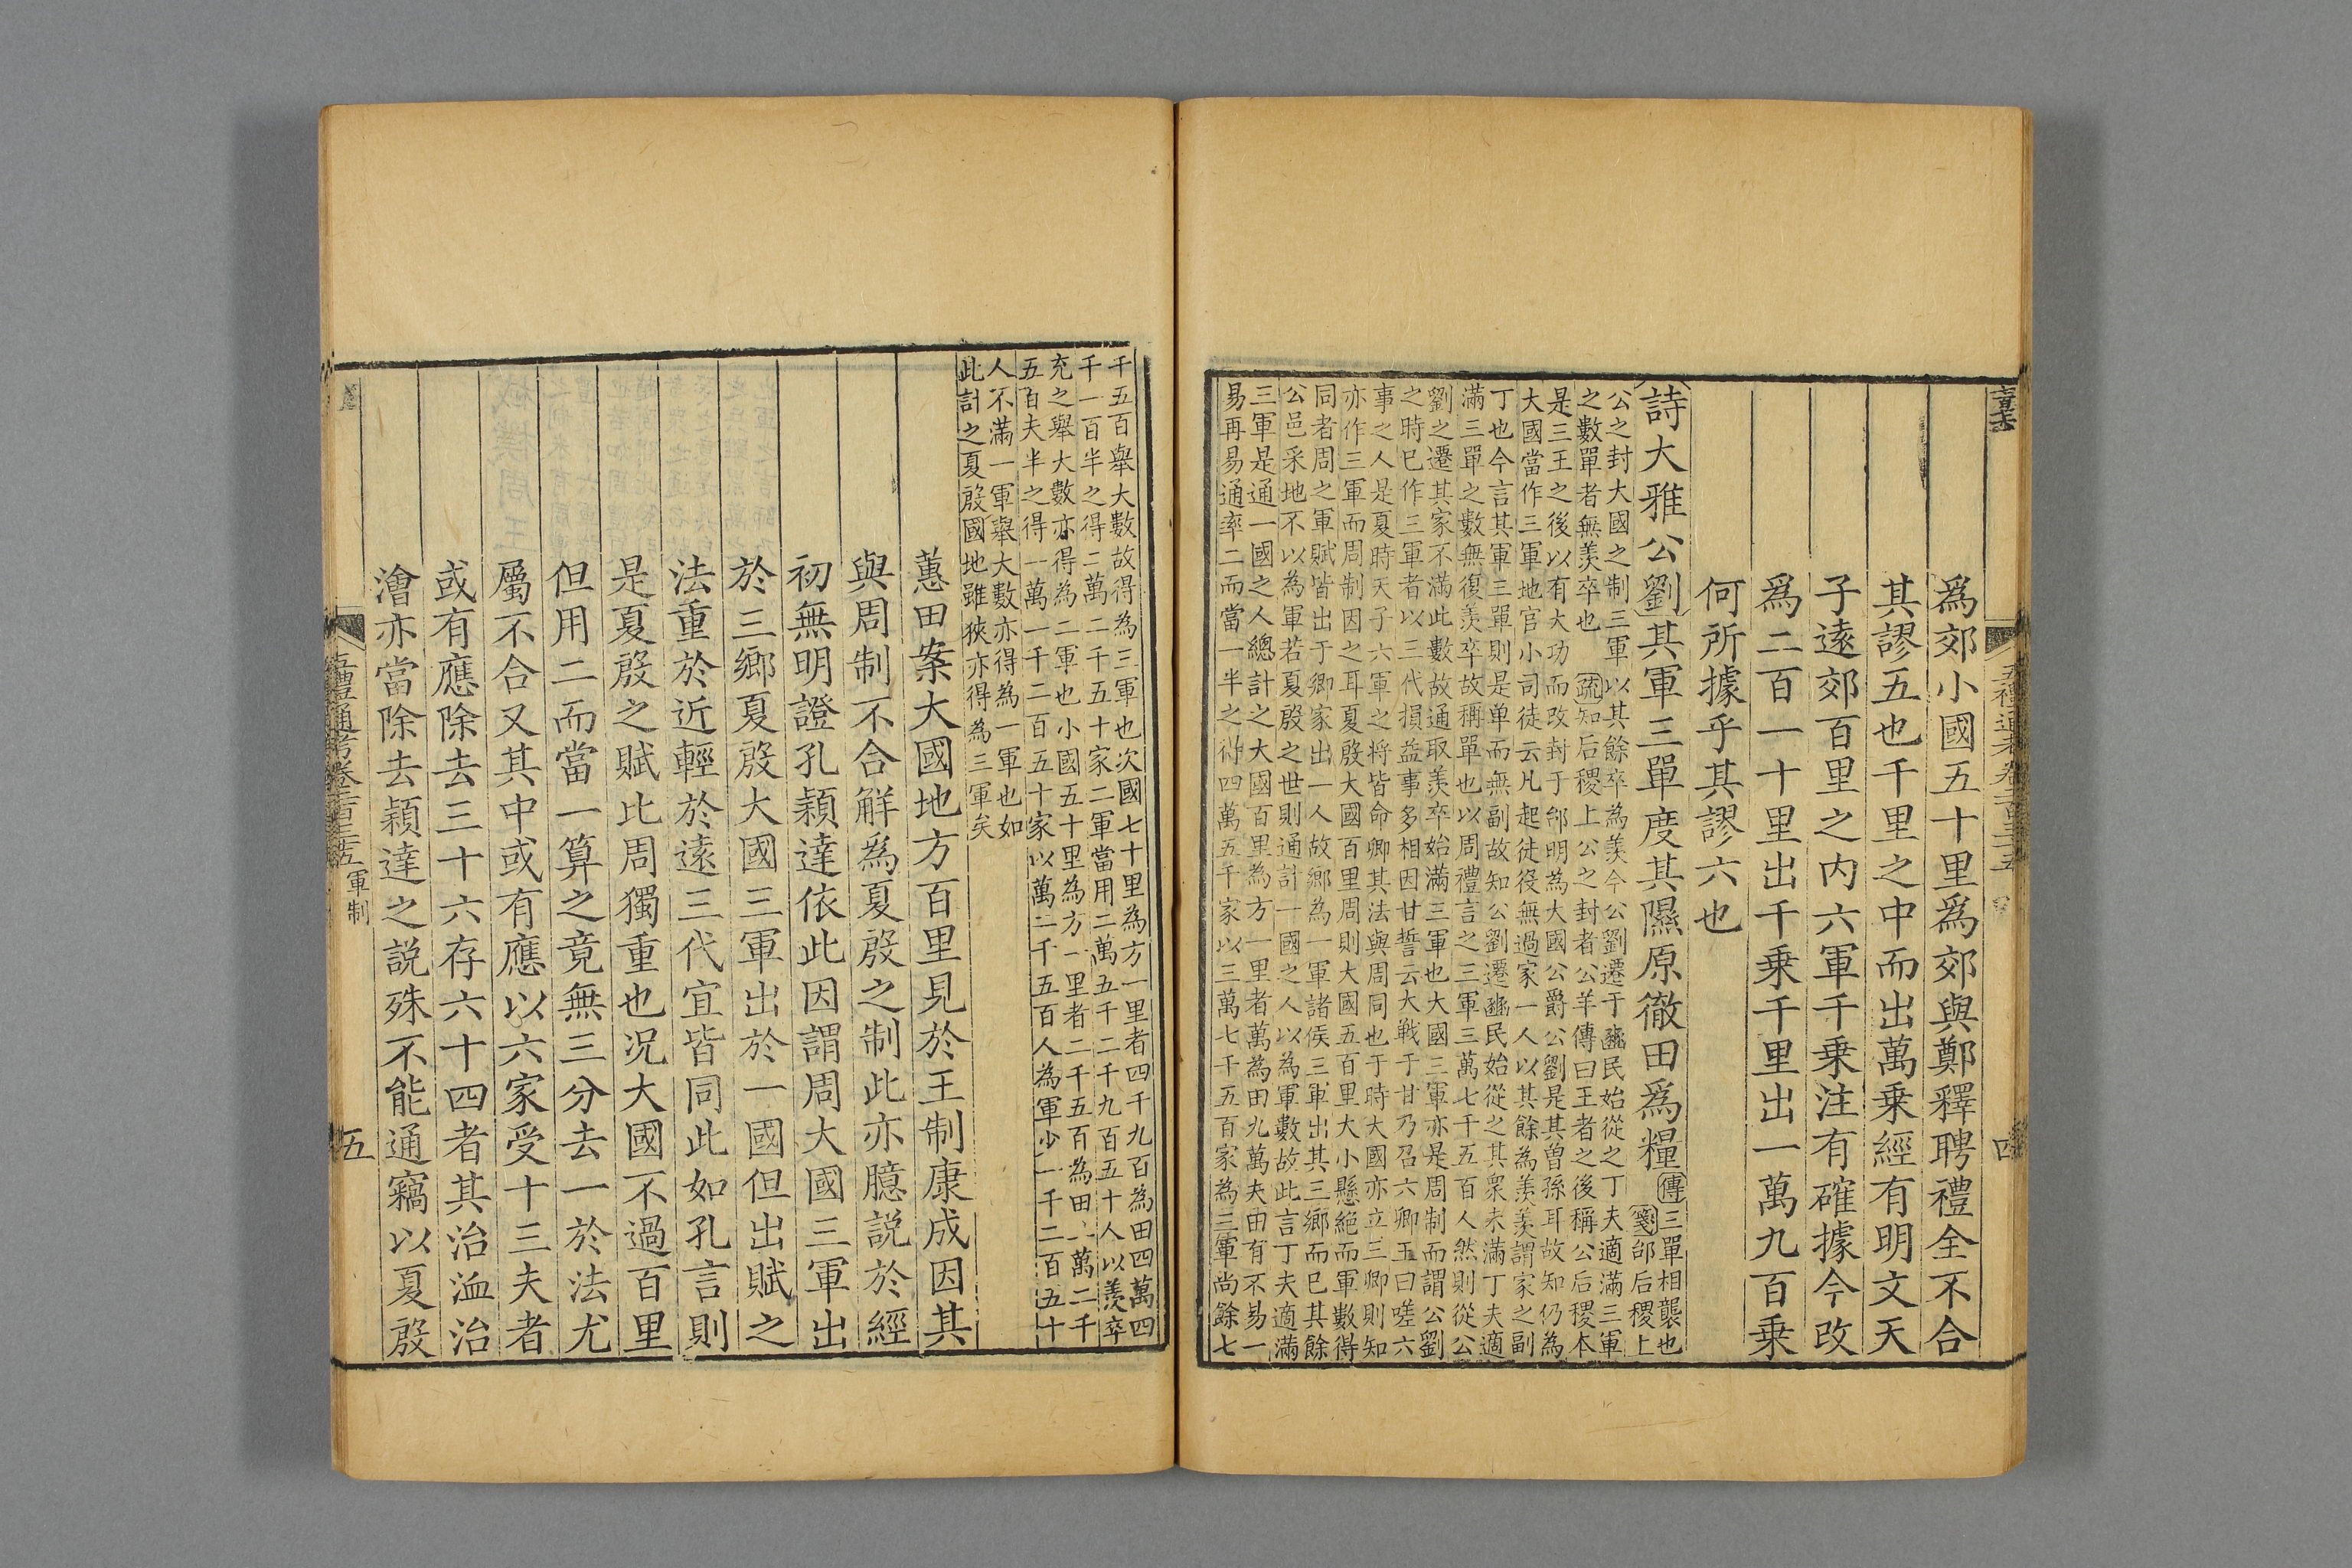 爲郊小國五十里爲郊與鄭釋聘禮全不合
其謬五也千里之中而出萬乗經有明文天
子遠郊百里之内六軍千乗注有確據今改
爲二百一十里出千乗千里出一萬九百乗
何所據乎其謬六也
詩大雅公劉其軍三單度其隰原徹田爲糧
傳三單相襲也
箋邰后稷上
公之封大國之制三軍以其餘卒為羨今公劉遷于豳民始從之丁夫適滿三軍
之數單者無羨卒也 疏知后稷上公之封者公羊傳曰王者之後稱公后稷本
是三王之後以有大功而改封于邰明為大國公爵公劉是其曽孫耳故知仍為
大國當作三軍地官小司徒云凡起徒役無過家一人以其餘為羨羨謂家之副
丁也今言其軍三單則是单而無副故知公劉遷豳民始從之其衆未滿丁夫適
滿三單之數無復羨卒故稱單也以周禮言之三軍三萬七千五百人然則從公
劉之遷其家不滿此數故通取羨卒始滿三軍也大國三軍亦是周制而謂公劉
之時已作三軍者以三代損益事多相因甘誓云大戰于甘乃召六卿王曰嗟六
事之人是夏時天子六軍之将皆命卿其法與周同也于時大國亦立三卿則知
亦作三軍而周制因之耳夏殷大國百里周則大國五百里大小懸絕而軍數得
同者周之軍賦皆出于卿家出一人故鄉為一軍諸侯三軍出其三鄉而已其餘
公邑采地不以為軍若夏殷之世則通計一國之人以為軍數故此言丁夫適滿
三軍是通一國之人總計之大國百里為方一里者萬為田九萬夫田有不易一
易再易通率二而當一半之得四萬五千家以三萬七千五百家為三軍尚餘七
五禮通考卷二百三十五 四
千五百舉大數故得為三軍也次國七十里為方一里者四千九百為田四萬四
千一百半之得二萬二千五十家二軍當用二萬五千二千九百五十人以羨卒
充之舉大數亦得為二軍也小國五十里為方一里者二千五百為田二萬二千
五百夫半之得一萬一千二百五十家以萬二千五百人為軍少一千二百五十
人不滿一軍舉大數亦得為一軍也如
此計之夏殷國地雖狹亦得為三軍矣
蕙田案大國地方百里見於王制康成因其
與周制不合解為夏殷之制此亦臆説於經
初無明證孔穎達依此因謂周大國三軍出
於三鄉夏殷大國三軍出於一國但出賦之
法重於近輕於遠三代宜皆同此如孔言則
是夏殷之賦比周獨重也况大國不過百里
但用二而當一算之竟無三分去一於法尤
屬不合又其中或有應以六家受十三夫者
或有應除去三十六存六十四者其治洫治
澮亦當除去穎達之説殊不能通竊以夏殷
五禮通考卷二百三十五 軍制 五